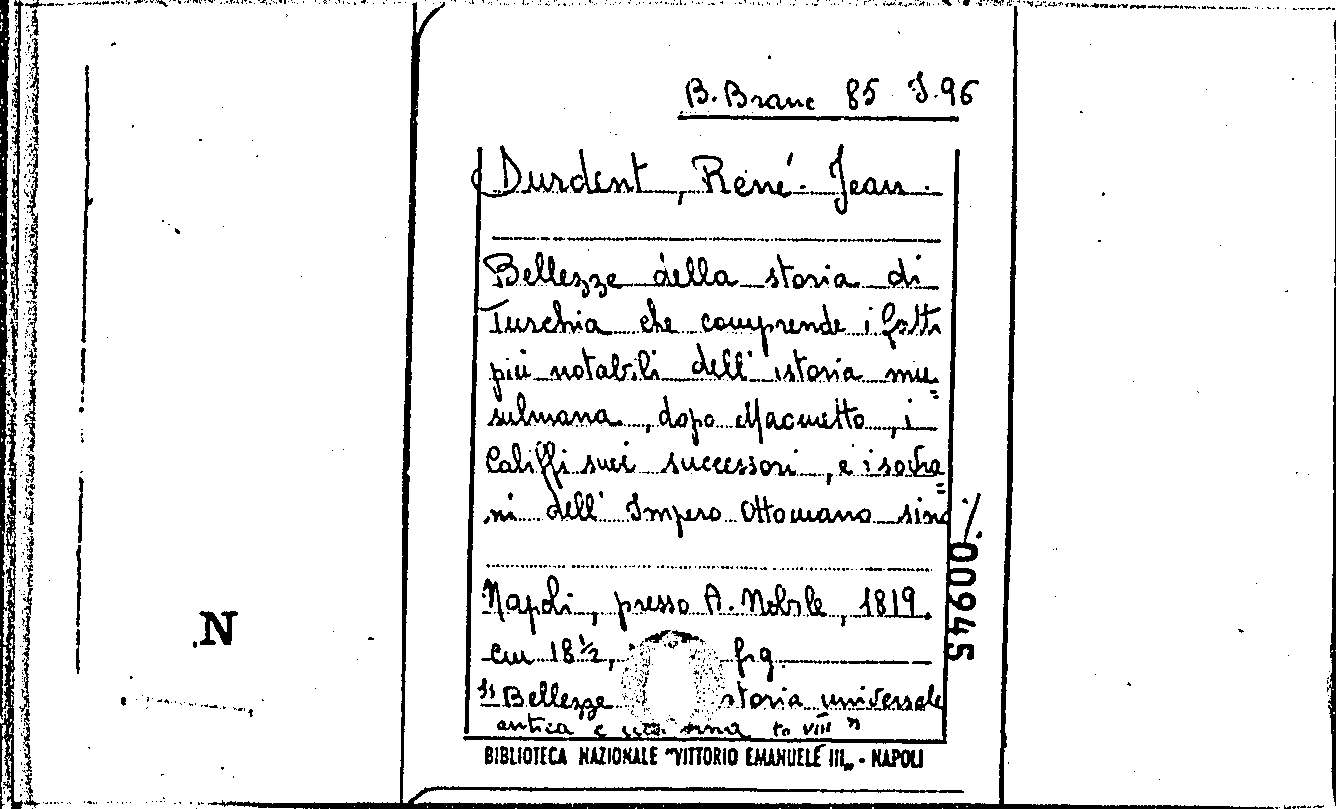 B. Branc 85 J.96
Durdent, René-Jean.
Bellezze della storia di
Turchia che comprende i fatti
più notabili dell'istoria mu=
sulmana, dopo Macmetto, i
Califfi suoi successori, e i sovra=
ni dell'Impero Ottomano sino ./.
Napoli, presso A. Nobile, 1819.
cm 18½, fig.
"Bellezze storia universale
antica e to VIII"
BIBLIOTECA NAZIONALE "VITTORIO EMANUELE III„ - NAPOLI
00945
N